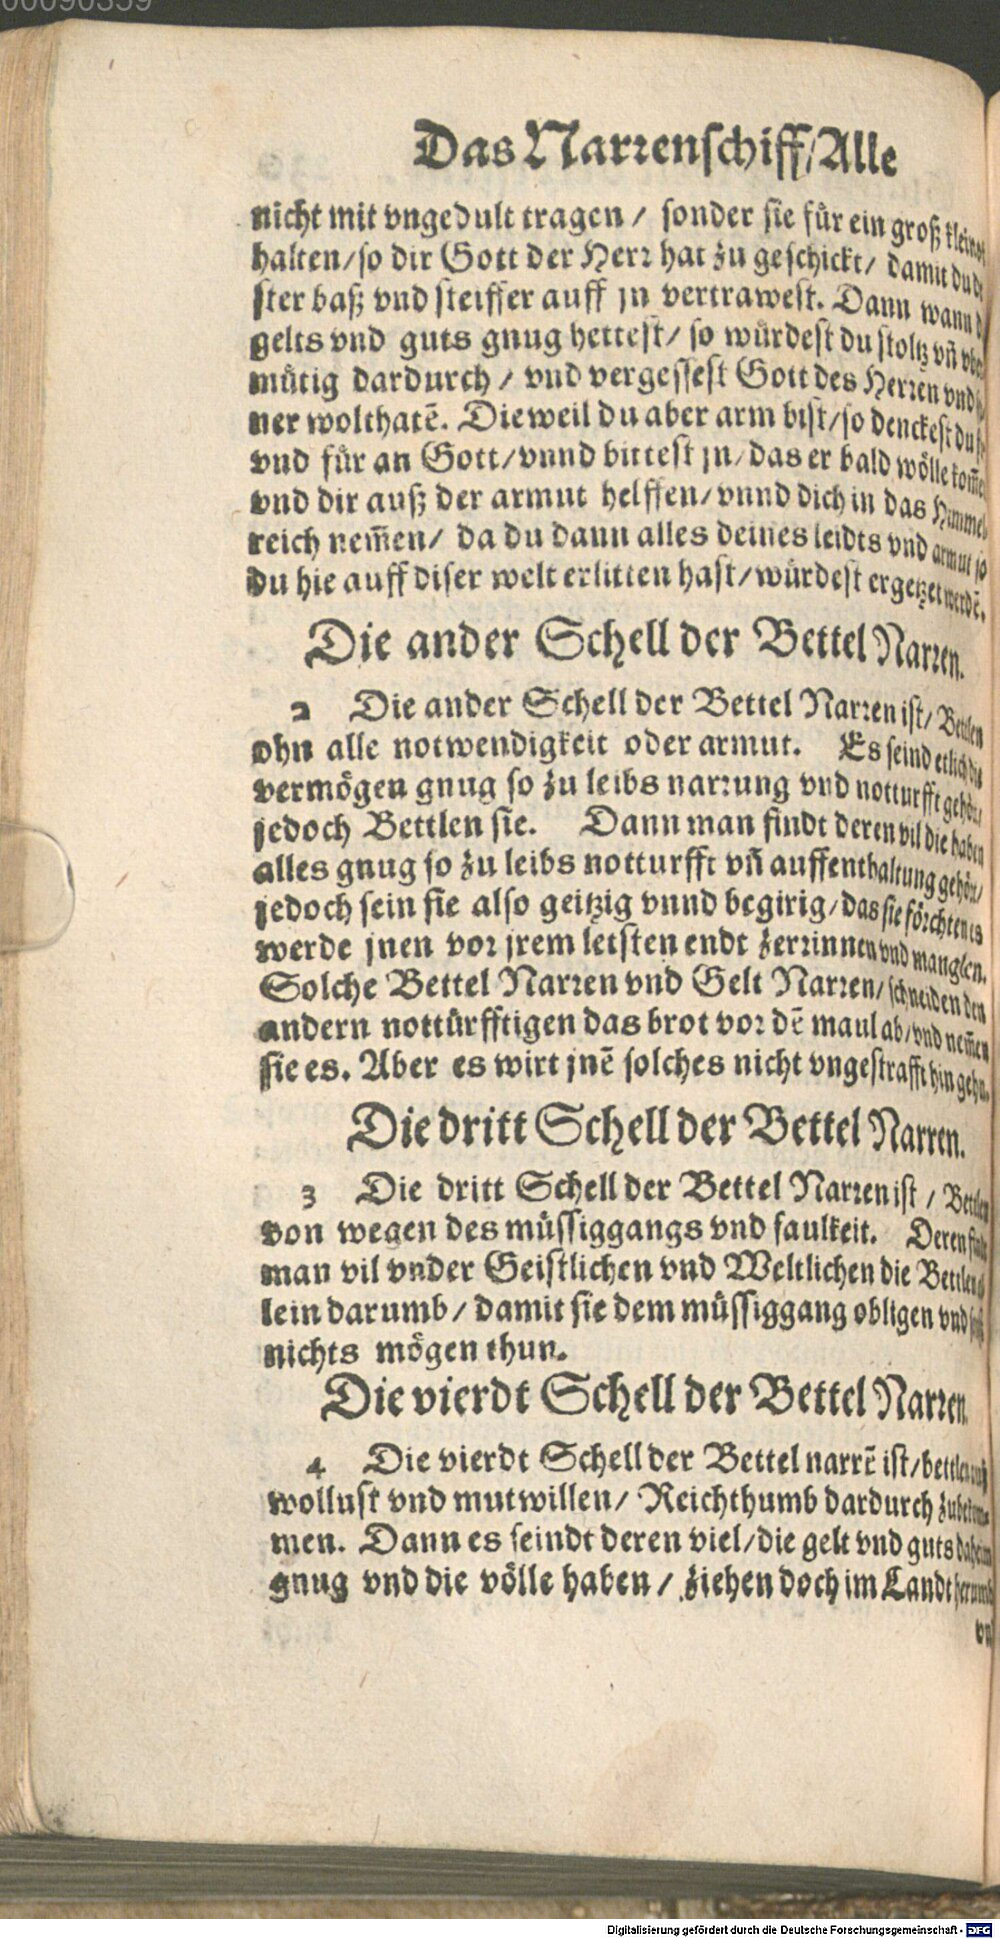 00090359
Das Narrenschiff/Alle
nicht mit vngedult tragen / sonder sie für ein groß kleinot
halten/so dir Gott der Herr hat zu geschickt/ damit du
ster baß vnd steiffer auff jn vertrawest. Dann wann
gelts vnd guts gnug hettest/ so würdest du stoltz vñ
mütig dardurch / vnd vergessest Gott des Herren vnd
ner wolthatẽ. Dieweil du aber arm bist/so denckest du
vnd für an Gott/vnnd bittest jn/das er bald wölle kom̃en
vnd dir auß der armut helffen/vnnd dich in das Himmel
reich nem̃en/ da du dann alles deines leidts vnd armut so
du hie auff diser welt erlitten hast/würdest ergetzet werdẽ.
Die ander Schell der Bettel Narren.
2 Die ander Schell der Bettel Narren ist/ Bettlen
ohn alle notwendigkeit oder armut. Es seind etlich die
vermögen gnug so zu leibs narrung vnd notturfft gehört/
jedoch Bettlen sie. Dann man findt deren vil die haben
alles gnug so zu leibs notturfft vñ auffenthaltung gehört/
jedoch sein sie also geitzig vnnd begirig/das sie förchten es
werde jnen vor jrem letsten endt zerrinnen vnd manglen.
Solche Bettel Narren vnd Gelt Narren/schneiden den
andern nottürfftigen das brot vor dẽ maul ab/vnd nem̃en
sie es. Aber es wirt jnẽ solches nicht vngestrafft hin gehn.
Die dritt Schell der Bettel Narren.
3 Die dritt Schell der Bettel Narren ist / Bettlen
von wegen des müssiggangs vnd faulkeit. Deren
man vil vnder Geistlichen vnd Weltlichen die Bettlen
lein darumb/ damit sie dem müssiggang obligen vnd
nichts mögen thun.
Die vierdt Schell der Bettel Narren.
4 Die vierdt Schell der Bettel narrẽ ist/bettlen
wollust vnd mutwillen/ Reichthumb dardurch
men. Dann es seindt deren viel/die gelt vnd guts
gnug vnd die völle haben / ziehen doch im Landt herumb
Digitalisierung gefördert durch die Deutsche Forschungsgemeinschaft - DFG